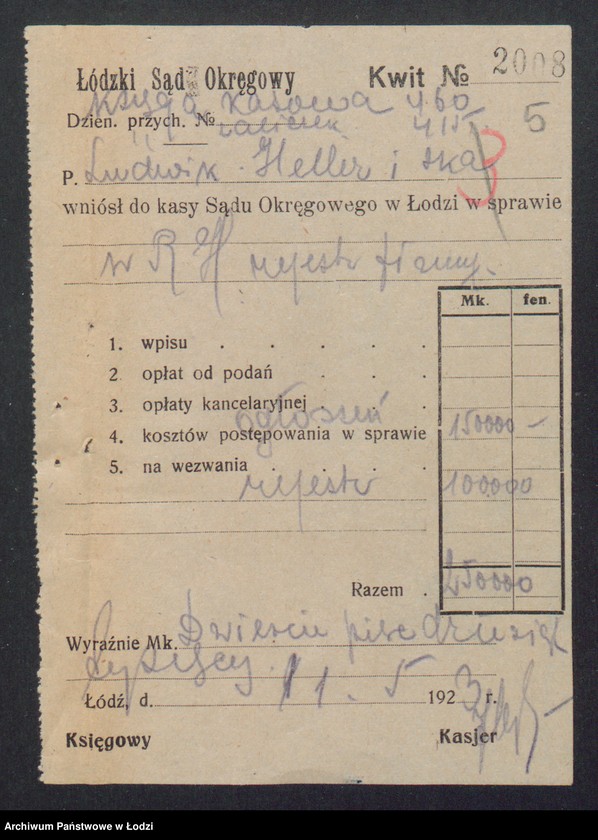 Łódzki Sąd Okręgowy Kwit № 2008
Księga kasowa 460 5
Dzien. przych. № zaliczek 415
P. Ludwik Heller i ska
wniósł do kasy Sądu Okręgowego w Łodzi w sprawie
w R H rejestr firmy.
Mk. fen.
1. wpisu . . . . .
2 opłat od podań . . .
3. opłaty kancelaryjnej . . .
ogłoszeń
4. kosztów postępowania w sprawie 150000 —
5. na wezwania . . . . .
rejestr 100000
Razem . 250000
Wyraźnie Mk. Dwieście pięćdziesiąt
tysięcy.
Łódź, d. 11. 5 1923 r.
Księgowy Kasjer
Archiwum Państwowe w Łodzi